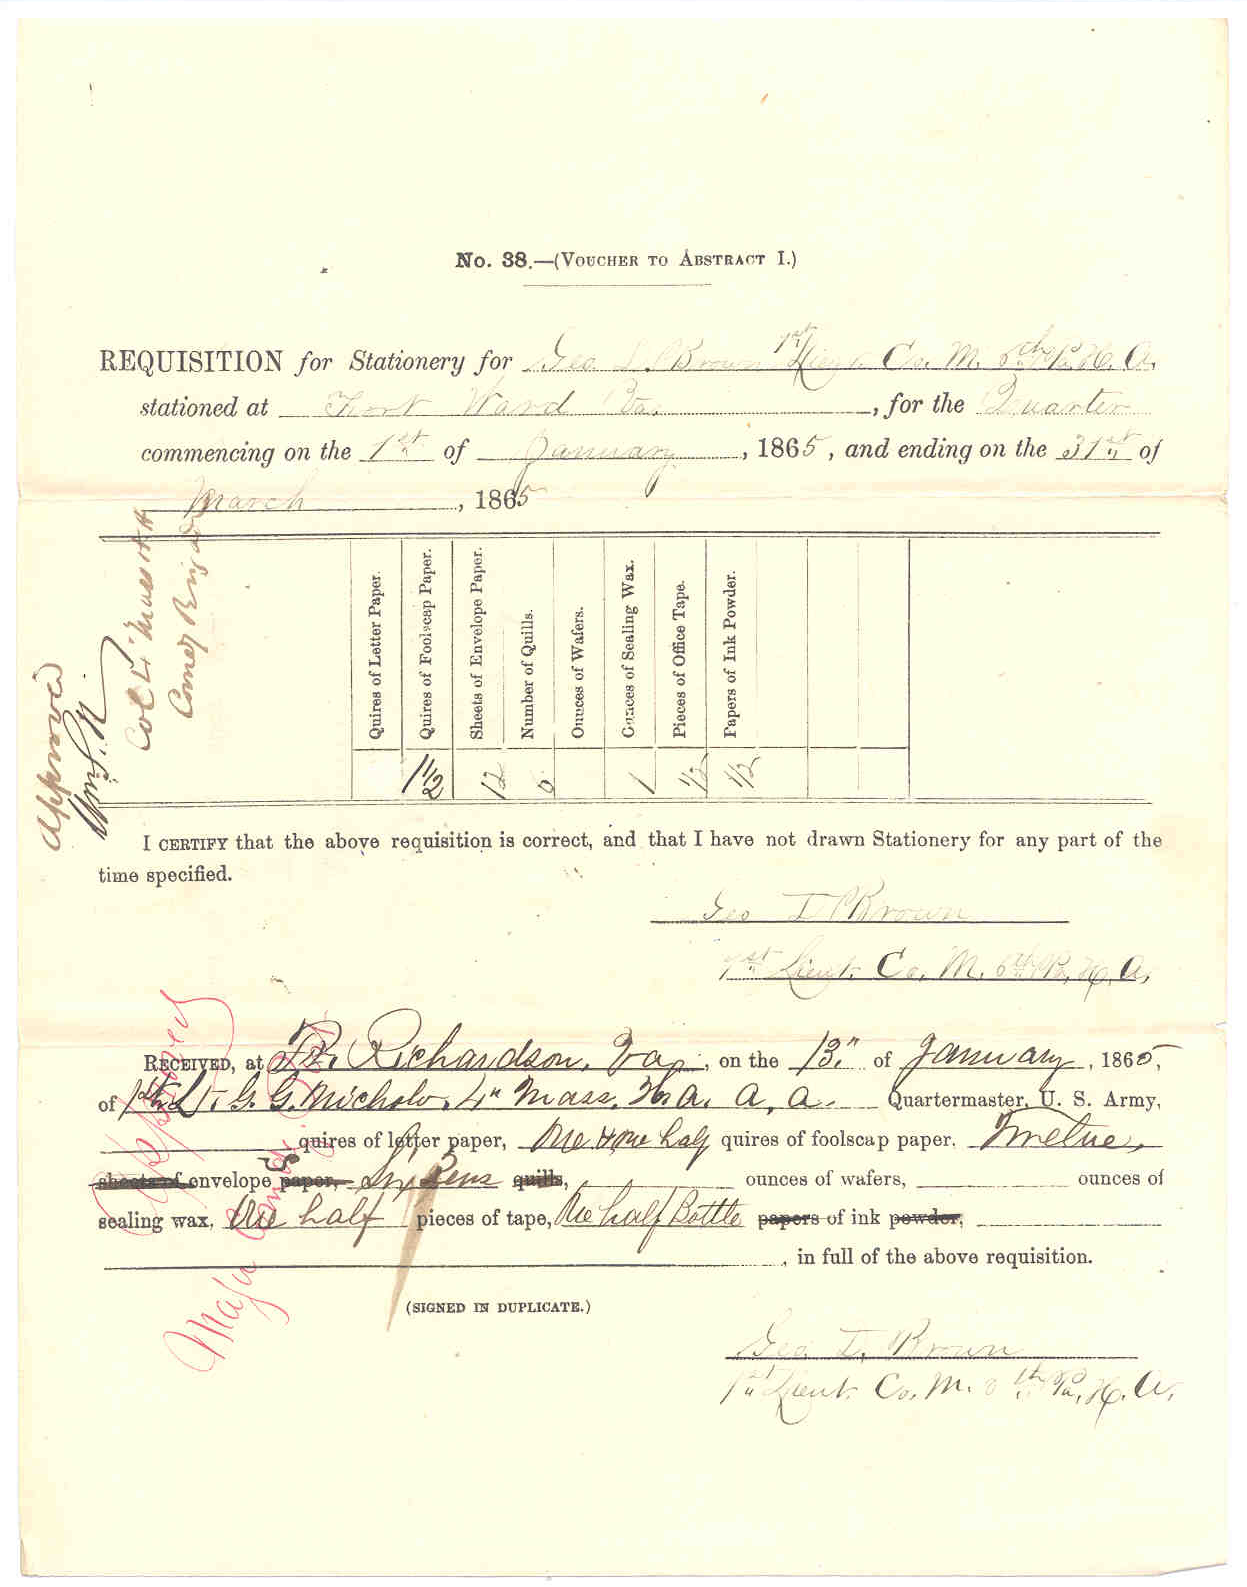 No. 38.—(Voucher to Abstract I.)
REQUISITION for Stationery for Geo I. Brown 1st Lieut. Co. M. 6th Pa. H. A.
stationed at Fort Ward Va. , for the Quarter
commencing on the 1st of January , 1865 , and ending on the 31st of
March , 1865
Quires of Letter Paper.
Quires of Foolscap Paper.
Sheets of Envelope Paper.
Number of Quills.
Ounces of Wafers.
Ounces of Sealing Wax.
Pieces of Office Tape.
Papers of Ink Powder.
1 1/2 12 6 1 1/2 1/2
Approved
Col 4" Mass H A
Comdg Brigade
I certify that the above requisition is correct, and that I have not drawn Stationery for any part of the
time specified.
Geo I Brown
1st Lieut. Co. M. 6th Pa. H. A.
Received, at Ft. Richardson, Va. , on the 13" of January , 1865,
of 1st Lt. G. G. Nichols, 4" Mass. H. A. A. A. Quartermaster, U. S. Army,
quires of letter paper, One & One half quires of foolscap paper. Twelve,
sheets of envelope paper, Six Pens quills, ounces of wafers, ounces of
sealing wax, One half pieces of tape, One half Bottle papers of ink powder,
, in full of the above requisition.
(SIGNED IN DUPLICATE.)
Geo I. Brown
1st Lieut. Co. M. 6th Pa. H. A.
Approved
Major Comdg.